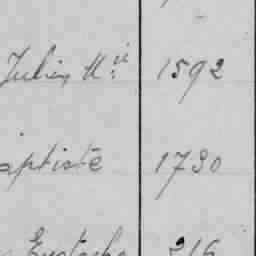 Julien Mie 1592
aptiste 1730
Eustache 216